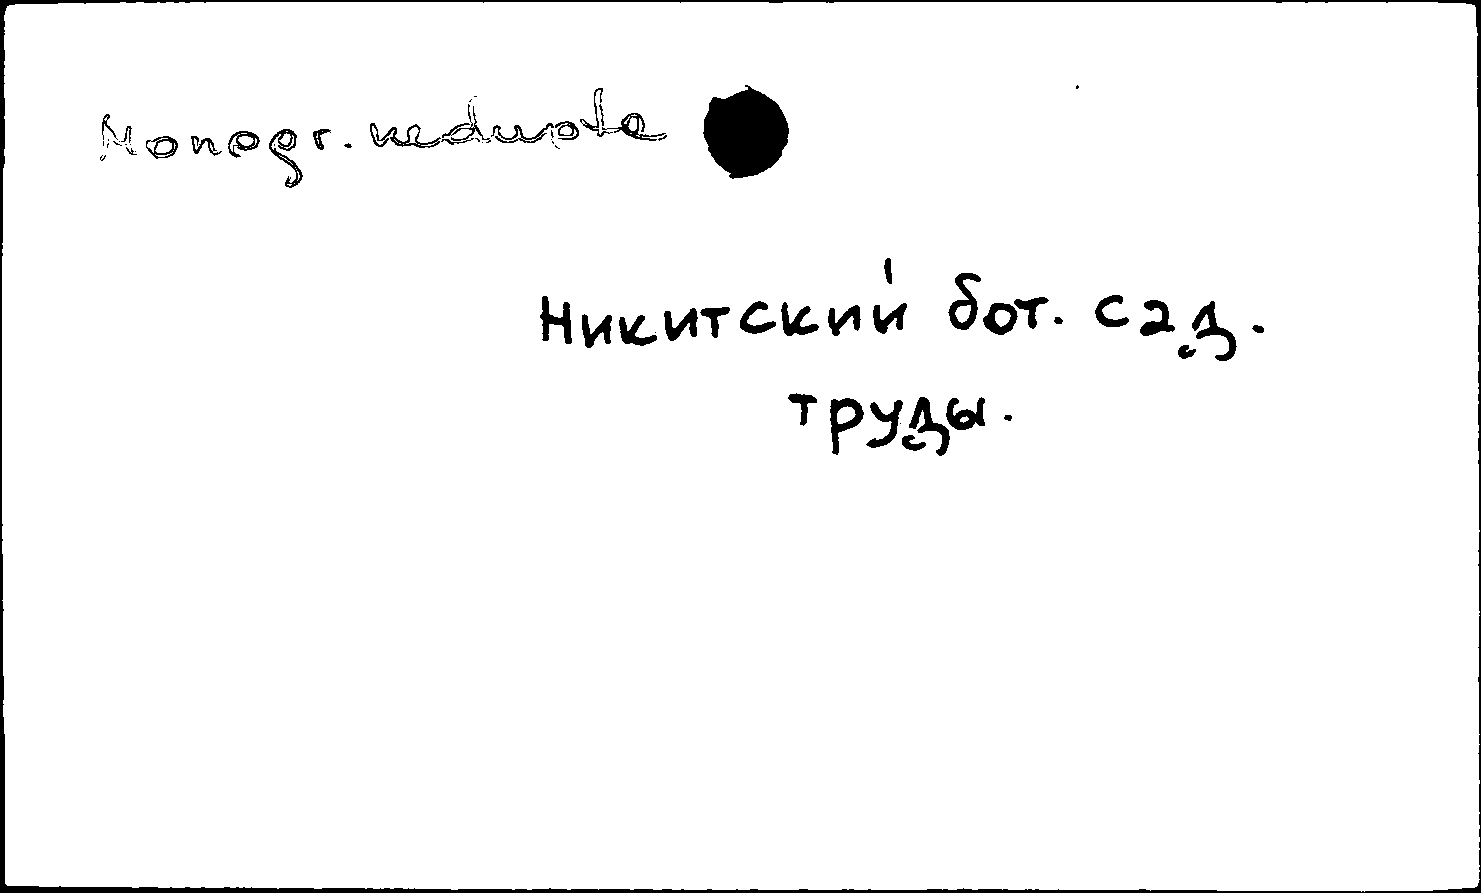 Monogr. neduota
Никитский бот. сад.
труды.